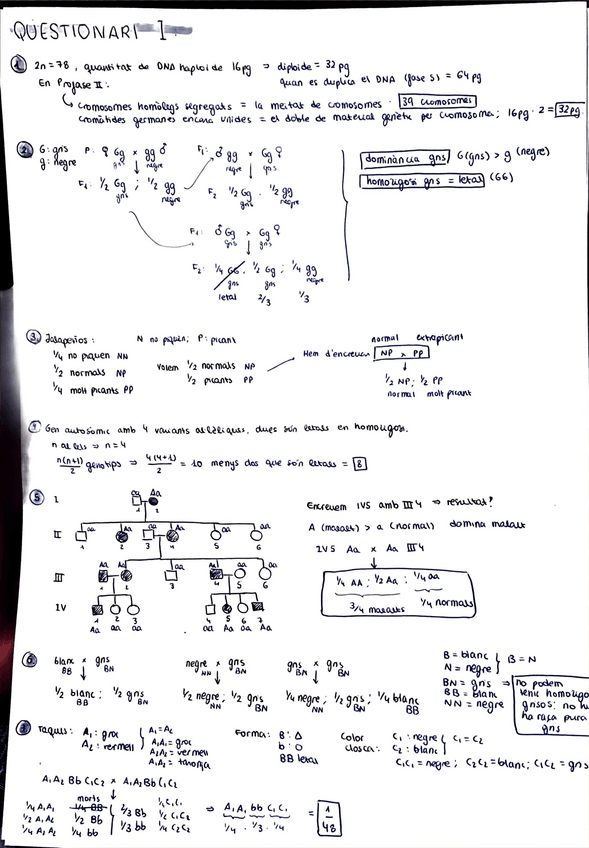 QÜESTIONARI - 1
1 2n=78, quantitat de DNA haploide 16pg ⇒ diploide = 32pg
En Profase II: quan es duplica el DNA (fase S) = 64pg
↳ Cromosomes homòlegs segregats = la meitat de cromosomes · 39 cromosomes
cromàtides germanes encara unides = el doble de material genètic per cromosoma; 16pg · 2 = 32pg
2 G: gris P: ♀ Gg × gg ♂ F1: ♂ gg × Gg ♀
g: negre gris negre negre gris
F1: 1/2 Gg ; 1/2 gg F2 1/2 Gg . 1/2 gg
gris negre gris negre
dominància gris G(gris) > g (negre)
homozigosi gris = letal (GG)
F1: ♂ Gg × Gg ♀
gris gris
F2: 1/4 GG . 1/2 Gg ; 1/4 gg
gris gris negre
letal 2/3 1/3
3 Jalapeños: N no piquen; P: picant
1/4 no piquen NN
1/2 normals NP
1/4 molt picants PP
Volem 1/2 normals NP
1/2 picants PP
normal extrapicant
Hem d'encreuar NP × PP
1/2 NP; 1/2 PP
normal molt picant
4 Gen autosòmic amb 4 variants al·lèliques, dues són letals en homozigosi.
n al·lels ⇒ n=4
n(n+1)/2 genotips ⇒ 4(4+1)/2 = 10 menys dos que són letals = 8
5 I aa Aa
1 2
II aa Aa aa Aa aa aa
1 2 3 4 5 6
III Aa Aa aa Aa aa aa
1 2 3 4 5 6
IV 1 2 3 4 5 6 7
Aa aa aa aa Aa aa Aa
Encreuem IV5 amb III4 ⇒ resultat?
A (malalt) > a (normal) domina malalt
IV5 Aa × Aa III4
1/4 AA ; 1/2 Aa ; 1/4 aa
3/4 malalts 1/4 normals
6 blanc × gris negre × gris gris × gris
BB BN NN BN BN BN
1/2 blanc; 1/2 gris 1/2 negre; 1/2 gris 1/4 negre; 1/2 gris; 1/4 blanc
BB BN NN BN NN BN BB
B = blanc
N = negre
B = N
BN = gris ⇒
BB = blanc
NN = negre
no podem
tenir homozigots
grisos; no hi
ha raça pura
gris
Taques: A1: groc
A2: vermell
A1=A2
A1A1 = groc
A2A2 = vermell
A1A2 = taronja
Forma: B: Δ
b: O
BB letal
Color
closca:
C1: negre
C2: blanc
C1 = C2
C1C1 = negre; C2C2 = blanc; C1C2 = gris
A1A2 Bb C1C2 × A1A2 Bb C1C2
morts
1/4 A1A1 1/4 BB 2/3 Bb 1/4 C1C1
1/2 A1A2 1/2 Bb 1/3 bb 1/2 C1C2
1/4 A2A2 1/4 bb 1/4 C2C2
⇒ A1A1 bb C1C1 = 1/48
1/4 · 1/3 · 1/4